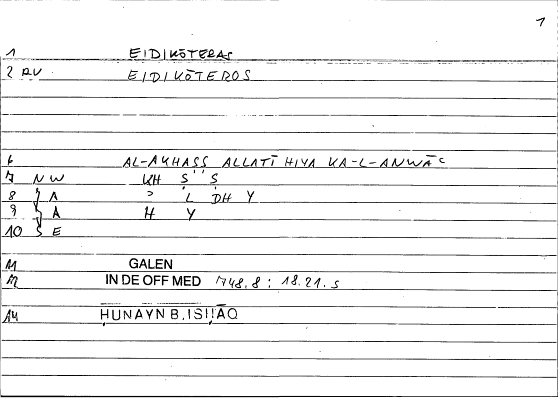 1
1 EIDIKŌTERAS
2 RV EIDIKŌTEROS
6 AL-AKHASS ALLATĪ HIYA KA-L-ANWĀʿ
7 N W KH Ṣ Ṣ
8 A ʾ L DH Y
9 A H Y
10 S E
11 GALEN
12 IN DE OFF MED 748.8 : 18.21.5
14 ḤUNAYN B. ISḤĀQ